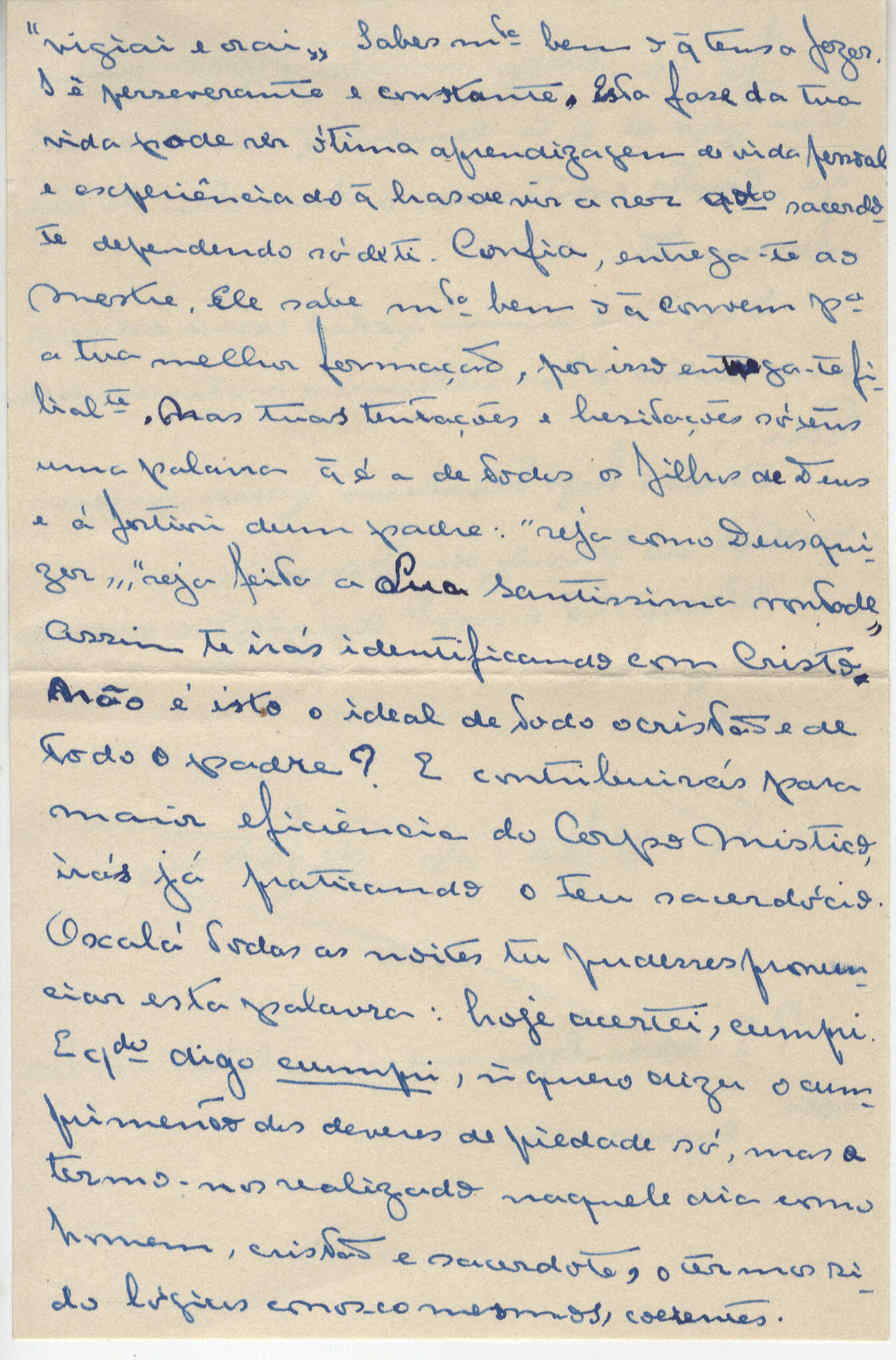 "vigiai e orai„ Sabes mto bem o q̄ tens a fazer.
Sê perseverante e constante. Esta fase da tua
vida pode ser ótima aprendizagem de vida pessoal
e experiência do q̄ has de vir a ser qdo sacerdo-
te dependendo só de ti. Confia, entrega-te ao
Mestre. Ele sabe mto bem o q̄ convem pa
a tua melhor formação, por isso entrega-te fi-
lialte. Nas tuas tentações e hesitações só tens
uma palavra q̄ é a de todos os filhos de Deus
e á fortiori dum padre: "seja como Deus qui-
zer„, "seja feita a Sua Santissima vontade„
Assim te irás identificando com Cristo.
Não é isto o ideal de todo o cristão e de
todo o padre? E contribuirás para
maior eficiência do Corpo Mistico,
irás já praticando o teu sacerdócio.
Oxalá todas as noites tu pudesses pronun-
ciar esta palavra: hoje acertei, cumpri.
E qdo digo cumpri, ñ quero dizer o cum-
primento dos deveres de piedade só, mas o
termo-nos realizado naquele dia como
homem, cristão e sacerdote, o termos si-
do lógicos conosco mesmos, coerentes.